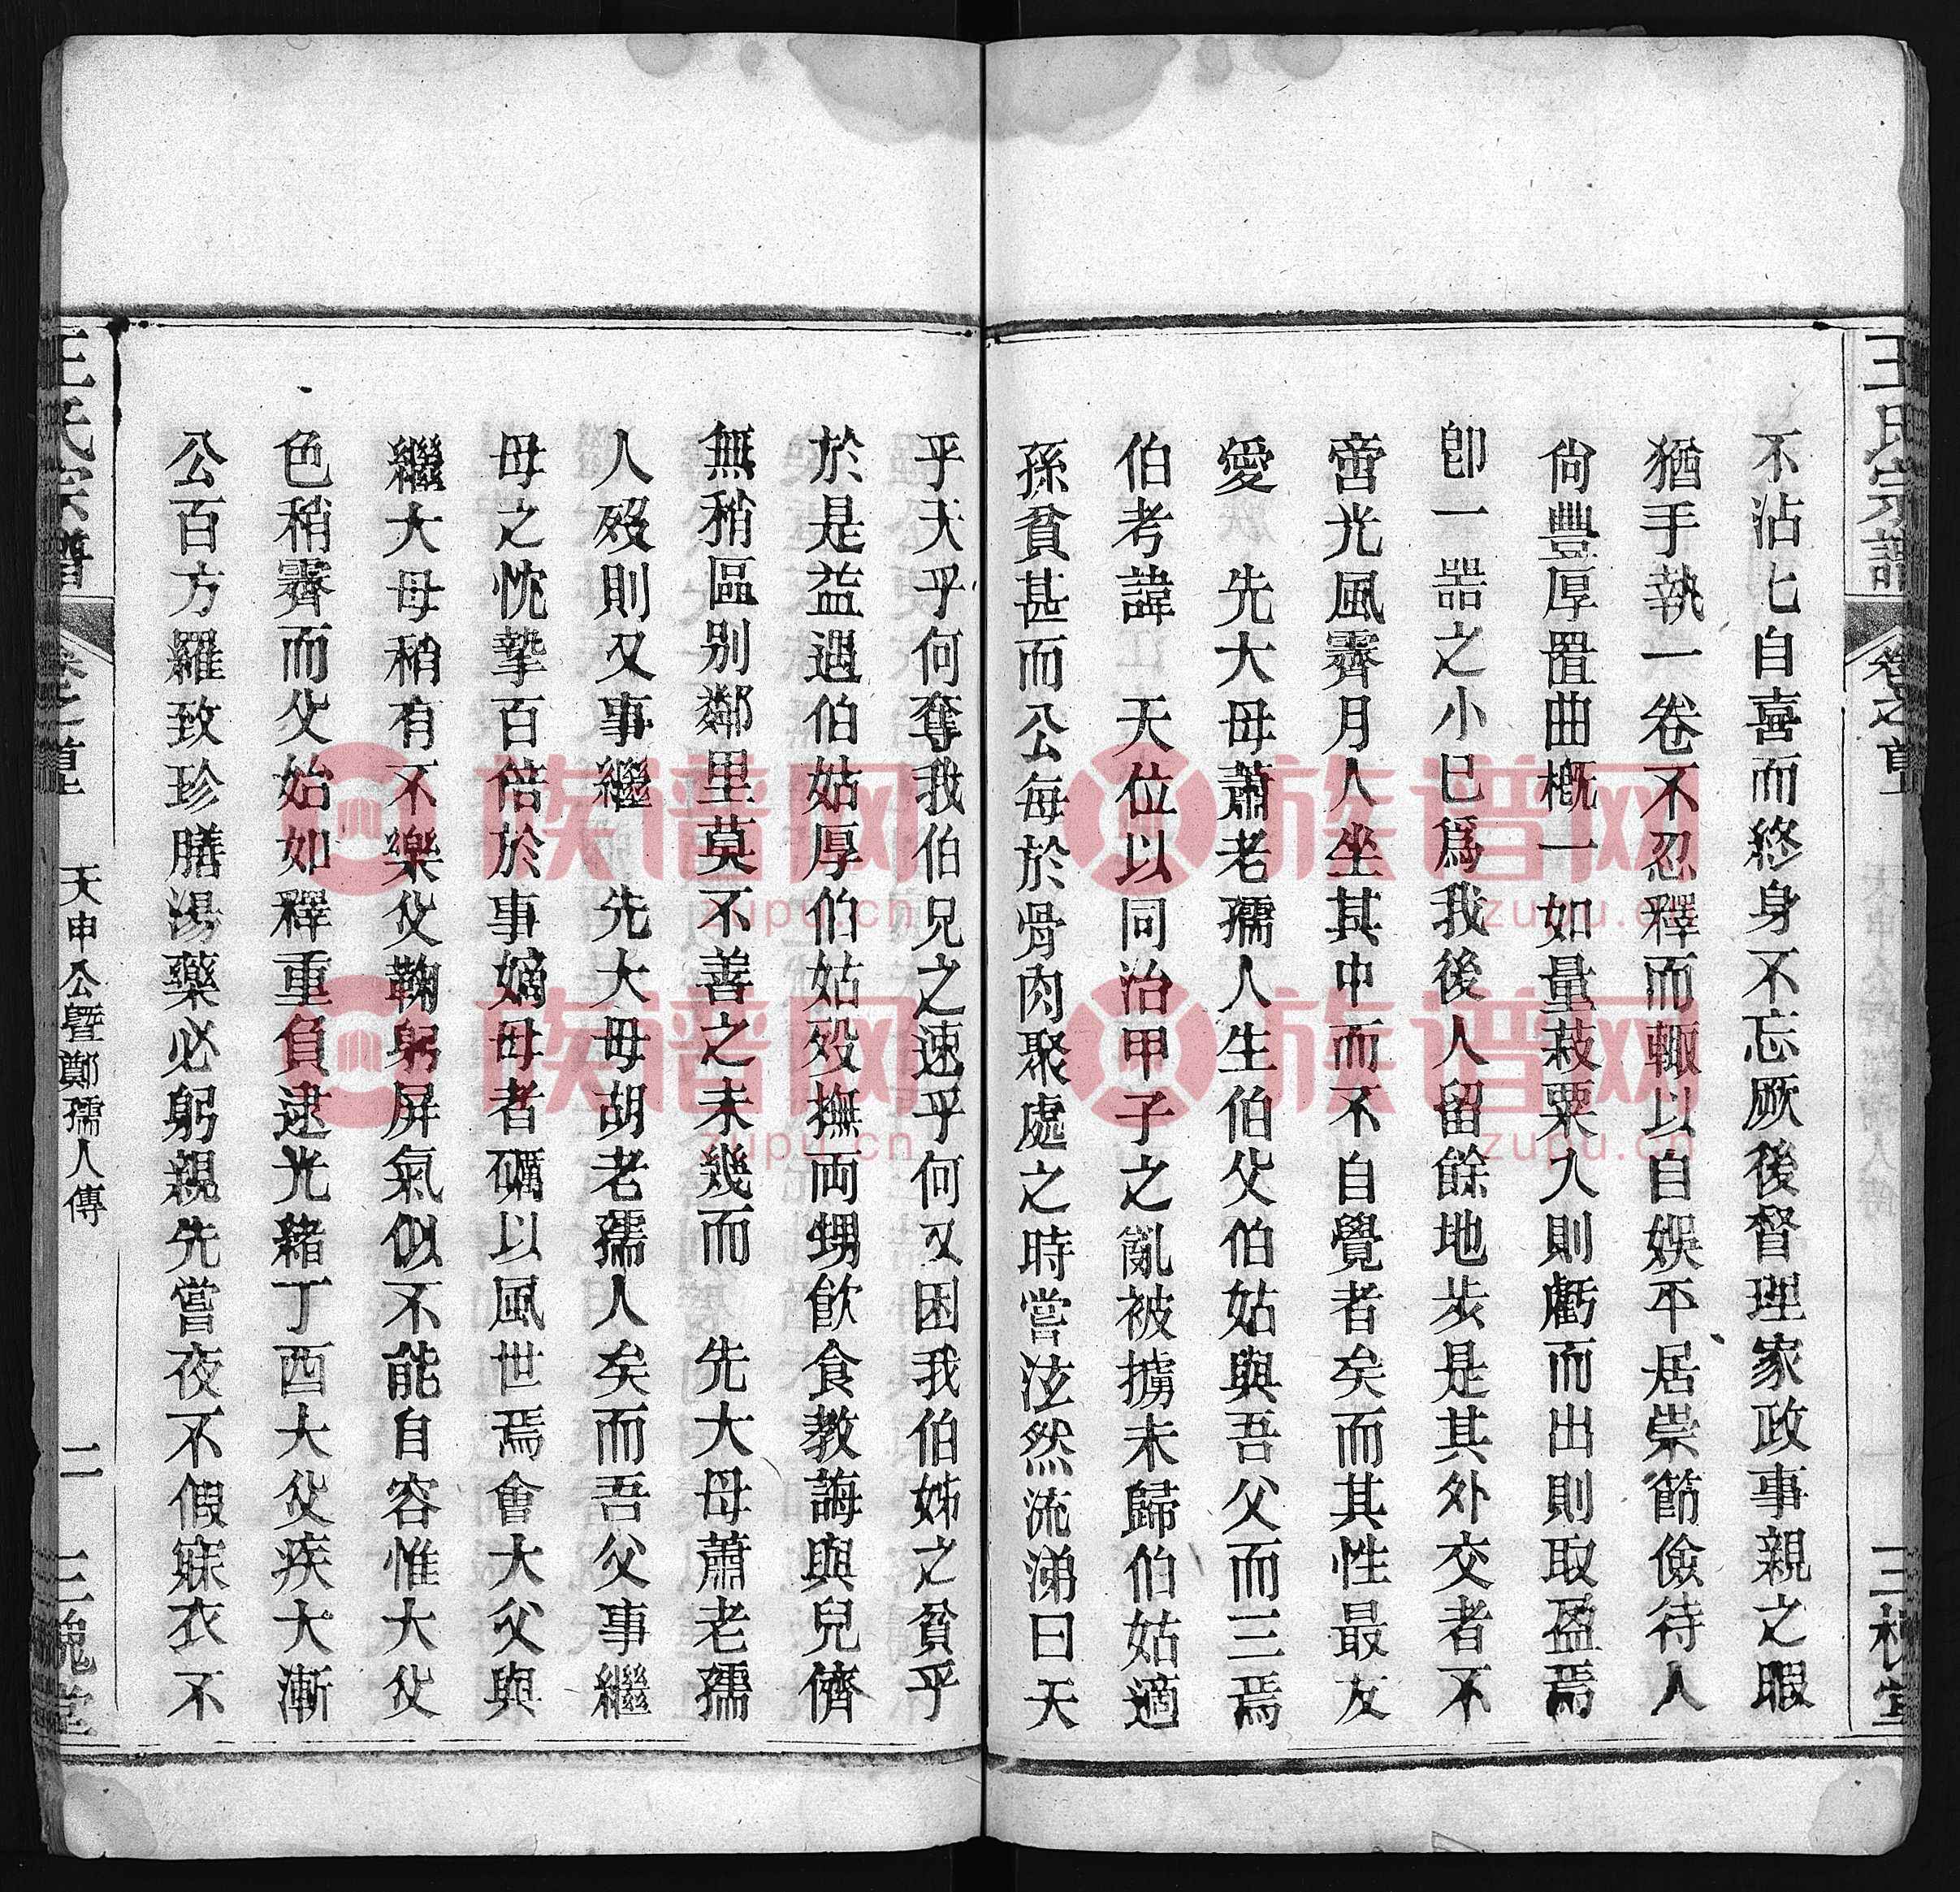 王氏宗譜
卷之首
三槐堂
不沾七自喜而終身不忘厥後督理家政事親之暇
猶手執一卷不忍釋而輒以自娛平居崇節儉待人
尙豐厚置曲槪一如量菽粟入則虧而出則取盈焉
卽一器之小已爲我後人留餘地步是其外交者不
啻光風霽月人坐其中而不自覺者矣而其性最友
愛 先大母蕭老孺人生伯父伯姑與吾父而三焉
伯考諱 天位以同治甲子之亂被擄未歸伯姑適
孫貧甚而公每於骨肉聚處之時嘗泫然流涕曰天
乎天乎何奪我伯兄之速乎何又困我伯姊之貧乎
於是益遇伯姑厚伯姑殁撫両甥飮食教誨與兒儕
無稍區别鄰里莫不善之未幾而 先大母蕭老孺
人殁則又事繼 先大母胡老孺人矣而吾父事繼
母之忱摯百倍於事嫡母者礪以風世焉會大父與
繼大母稍有不樂父鞠躬屏氣似不能自容惟大父
色稍霽而父始如釋重負逮光緒丁酉大父疾大漸
公百方羅致珍膳湯藥必躬親先嘗夜不假寐衣不
王氏宗譜
卷之首
天申公曁鄭孺人傳
二
三槐堂
族谱网
zupu.cn
族谱网
zupu.cn
族谱网
zupu.cn
族谱网
zupu.cn